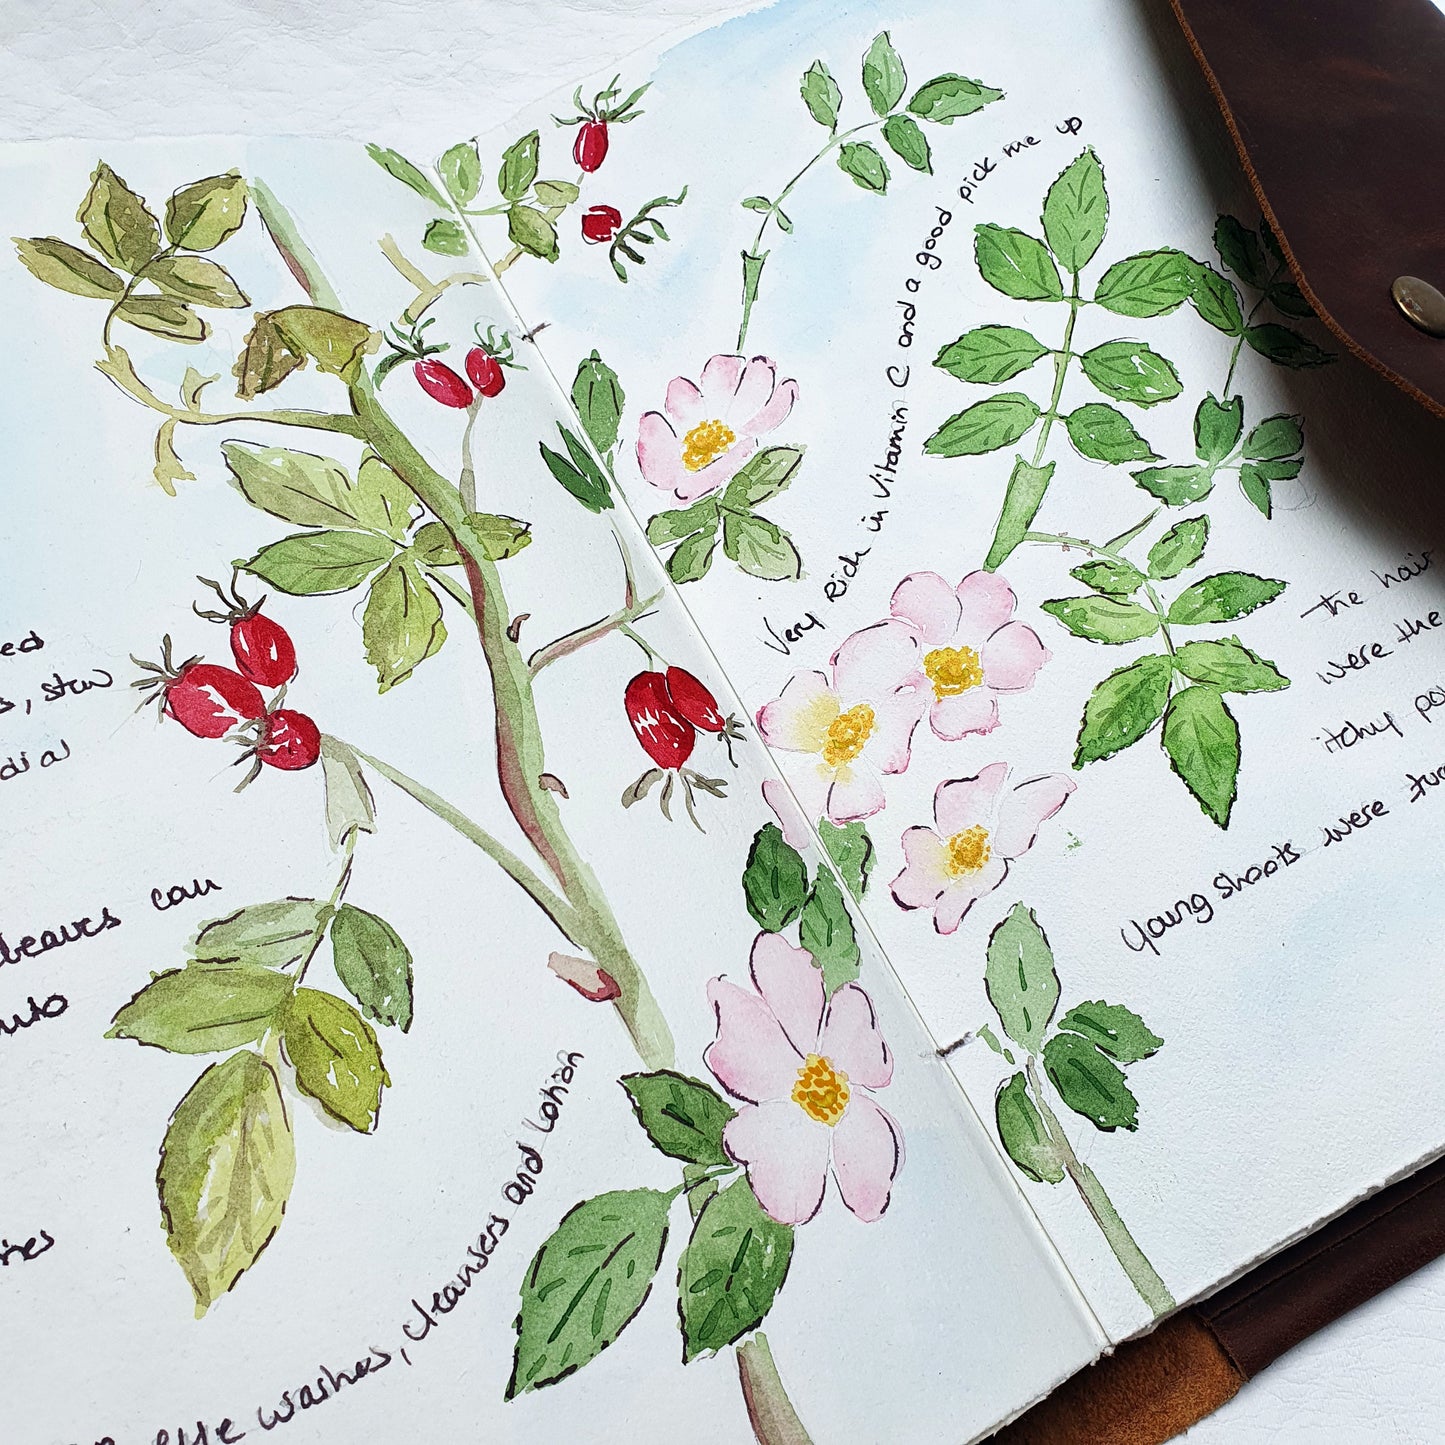 ed
s, stew
dial
leaves can
into
eye washes, cleansers and lotion
Very Rich in Vitamin C and a good pick me up
The hair
were the
itchy po
Young shoots were